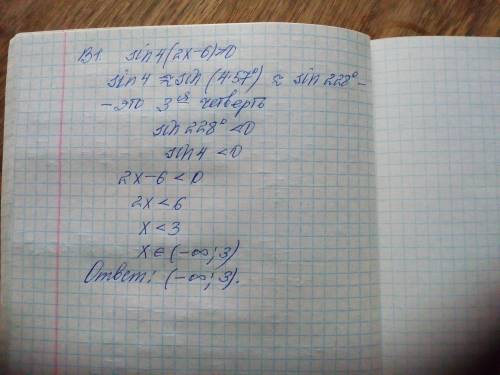 В1. sin4(2x-6)>0
sin4 ≈ sin(4·57°) ≈ sin 228° -
- это 3ья четверть
sin 228° <0
sin4 <0
2x-6 <0
2x <6
x <3
x∈(-∞; 3)
Ответ: (-∞; 3).